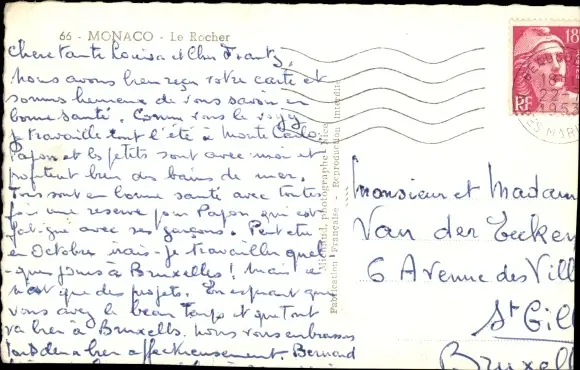 66 - MONACO - Le Rocher
Chère tante Louisa et Cher Frantz,
Nous avons bien reçu votre carte et
sommes heureux de vous savoir en
bonne santé. Comme vous le voyez
je travaille tout l'été à Monte Carlo.
Papon et les petits sont avec moi et
profitent bien des bains de mer.
Tous sont en bonne santé avec toutes
fois une réserve pour Papon qui est
fatigué avec ses garçons. Peut être
en Octobre irais-je travailler quel
-ques jours à Bruxelles! Mais ce
n'est que des projets. En espérant que
vous avez le beau temps et que tout
va bien à Bruxelles. Nous vous embrassons
tous bien affectueusement. Bernard
photographe, Nice
Fabrication Française - Reproduction Interdite
18
RF
1953
Monsieur et Madam
Van der Eecken
6 Avenue des Vill
St Gill
Bruxell